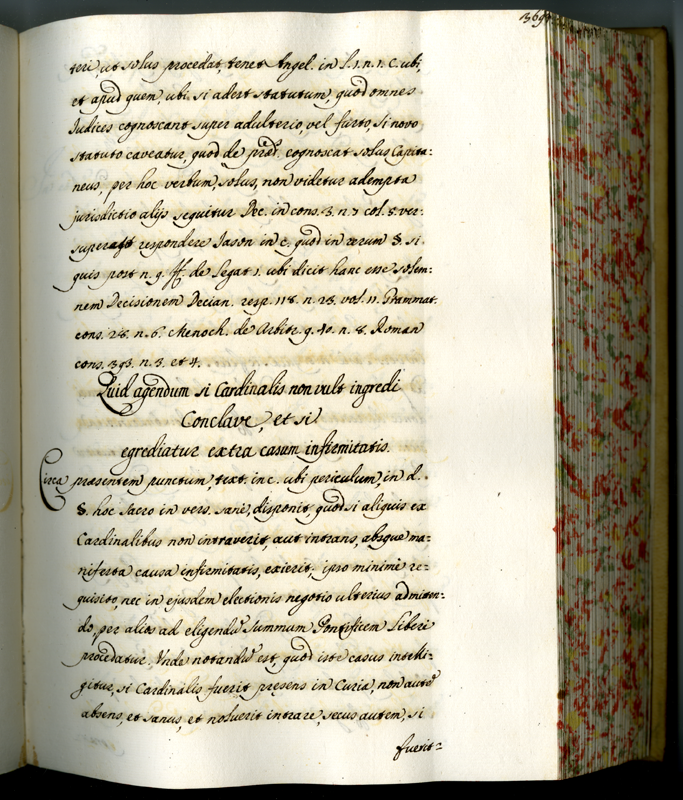 369
teri, ut solus procedat, tenet Angel. in l. 1. n. 1. C. ubi,
et apud quem, ubi si adest statutum, quod omnes
Iudices cognoscant super adulterio, vel furto, si novo
statuto caveatur, quod de præd. cognoscat solus Capita:
neus, per hoc verbum, solus, non videtur adempta
jurisdictio alijs sequitur Dec. in cons. 3. n. 7 col. 5. ver.
super respondere Iason in c. quod in rerum §. si
quis post n. 9. ff. de Legat 1. ubi dicit hanc esse solem:
nem Decisionem Decian. resp. 118. n. 28. vol. 11. Grammat.
cons. 28. n. 6. Menoch. de Arbitr. q. 40. n. 8. Roman
cons. 393. n. 3. et 4.
Quid agendum si Cardinalis non vult ingredi
Conclave, et si
egrediatur extra casum infirmitatis.
Circa præsentem punctum text. in c. ubi periculum, in d.
§. hoc sacro in vers. sanè, disponit, quod si aliquis ex
Cardinalibus non intraverit, aut intrans, absque ma:
nifesta causa infirmitatis, exierit, ipso minimè re:
quisito, nec in ejusdem electionis negotio ulterius admitten:
do, per alios ad eligendũ Summum Pontificem Liberè
procedatur. Unde notandũ est, quod iste casus intelli:
gitur, si Cardinalis fuerit præsens in Curia, non autẽ
absens, et sanus, et noluerit intrare, secus autem, si
fuerit: